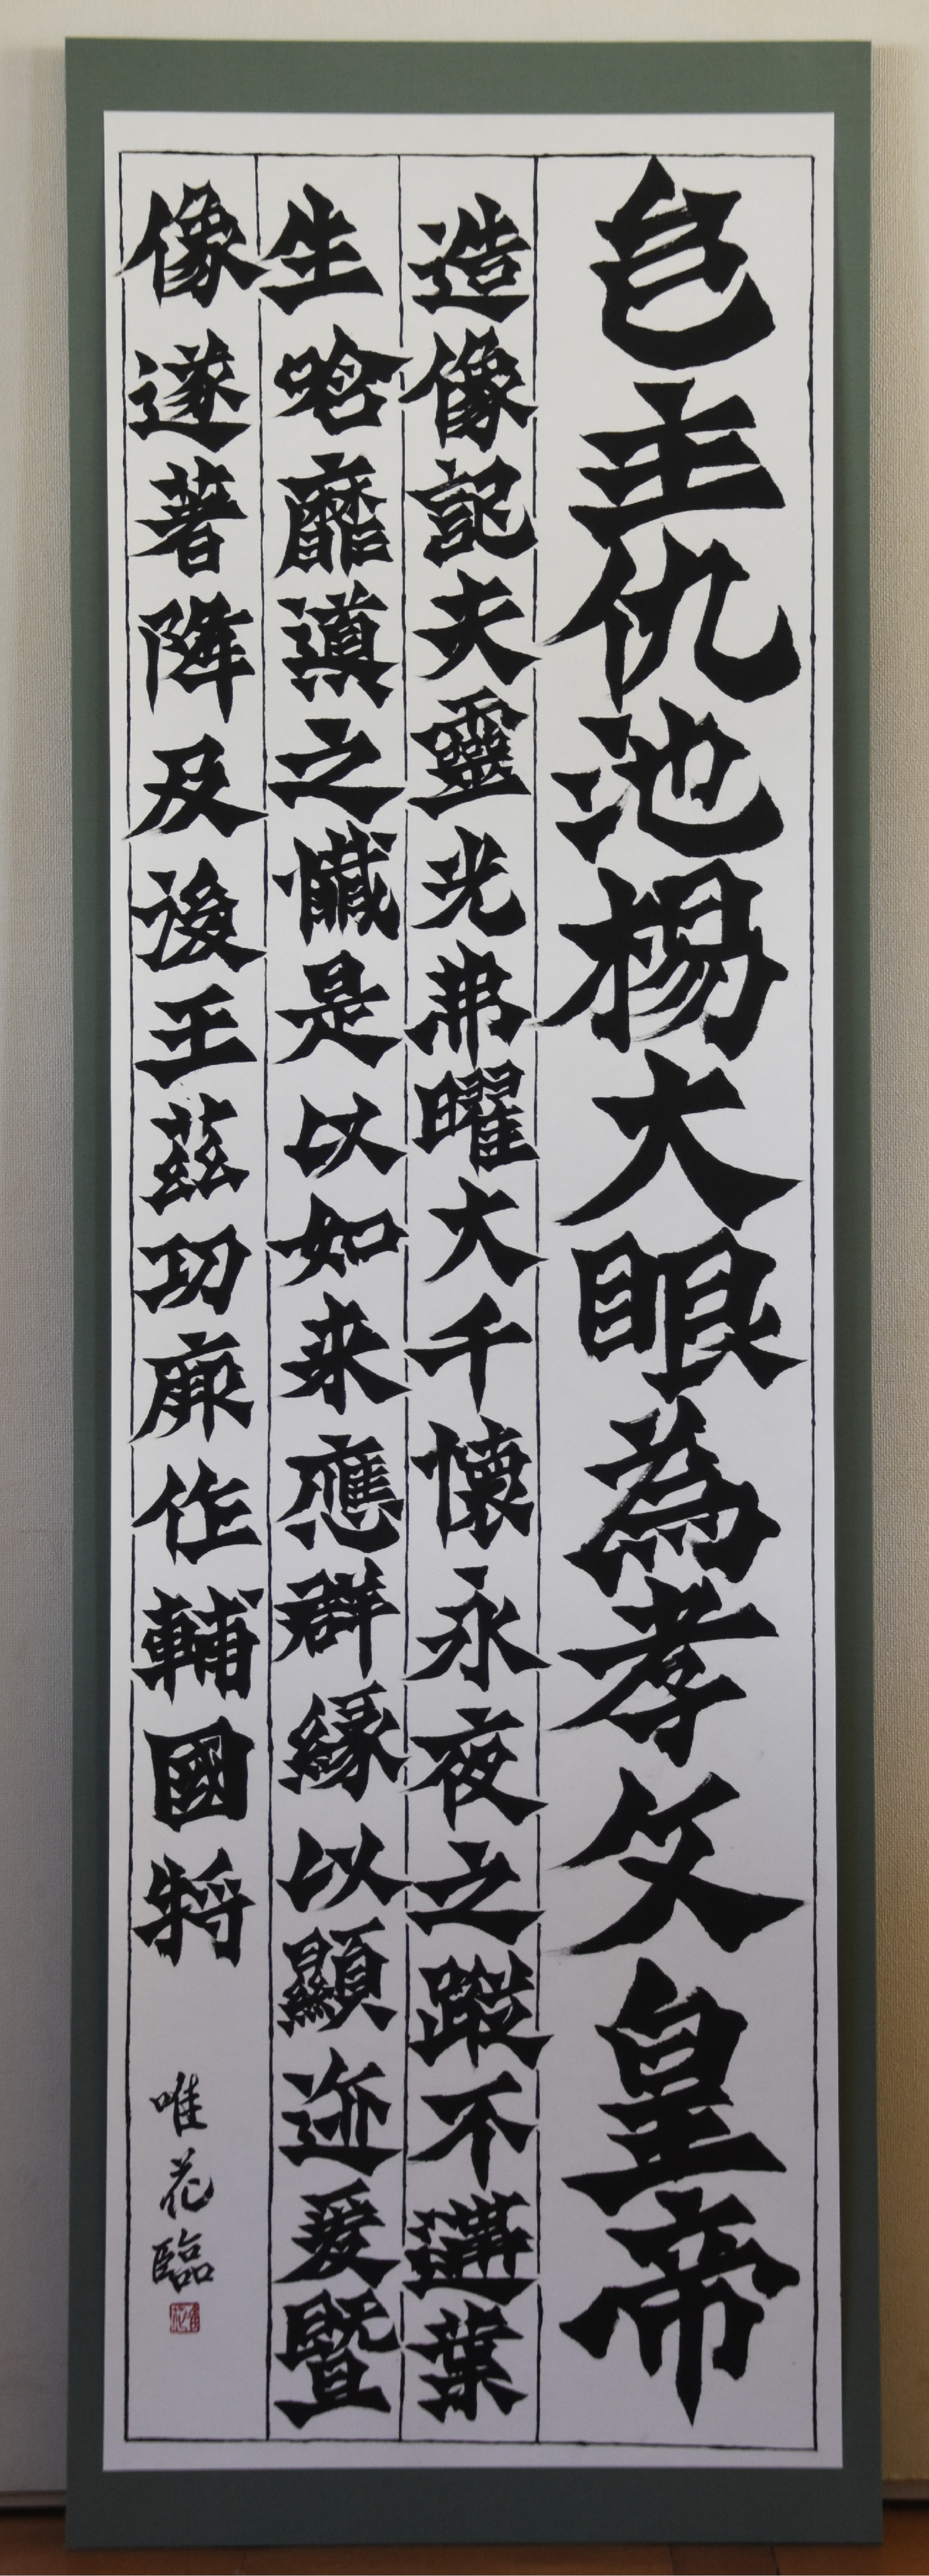 邑主仇池楊大眼為孝文皇帝
造像記夫靈光弗曜大千懷永夜之蹤不遘葉
生唅靡導之懺是以如来應群縁以顯迹爰暨
像遂著降及後王茲功厥作輔國將
唯花臨